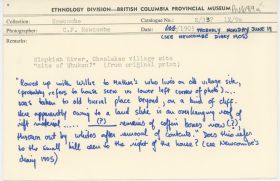 ETHNOLOGY DIVISION—BRITISH COLUMBIA PROVINCIAL MUSEUM
Location: Newcombe
Catalogue No.:
Photographer: C.F. Newcombe
Date: 1905 PROBABLY MONDAY JUNE 19
(SEE NEWCOMBE DIARY MOS)
Remarks:
Nimpkish River, Cheslakee Village site
"Site of Whulku?" (from original print)
"Rowed up with Willie to Nathan's who lives on old village site,
(probably refers to house seen in lower left corner of photo)...
was taken to old burial place beyond, on a bank of cliff.
Were apparently owing to a land slide is an overhanging roof of
rift material ..... (?) remains of coffin boxes now (?)
thrown out by whites after removal of contents". Does this refer
to the small hill seen to the right of the house? (see Newcombe's
diary 1905)